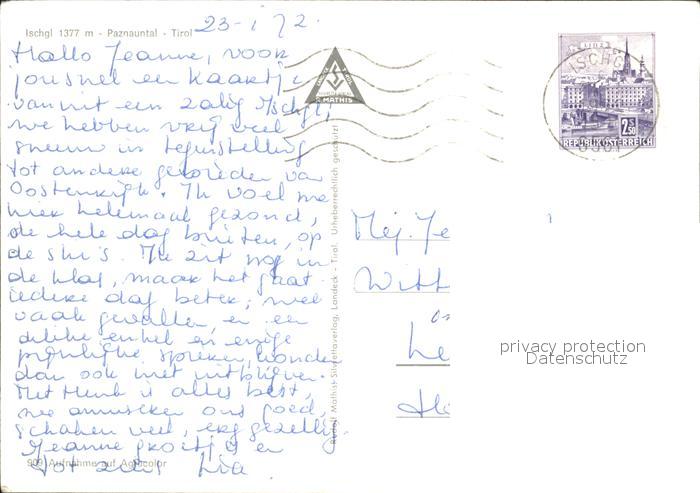 Ischgl 1377 m - Paznauntal - Tirol
23-1 72.
Hallo Jeanne, voor
jou snel een kaartje
vanuit een zalig Ischgl,
we hebben vrij veel
sneeuw in tegenstelling
tot andere gebieden van
Oostenrijk. Ik voel me
hier helemaal gezond,
de hele dag buiten, op
de ski's. Ik zit nog in
de klas, maar het gaat
iedere dag beter, wel
vaak gevallen, en een
dikke enkel en enige
pijnlijke spieren, konden
dan ook niet uitblijven.
Met Henk is alles best,
we amuseren ons goed,
schaken veel, erg gezellig.
Jeanne groetjes en
tot ziens Lia
909 Aufnahme auf Agfacolor
Rudolf Mathis, Silvrettaverlag, Landeck - Tirol. Urheberrechtlich geschützt
MATHIS
ISCHGL
6561
2.50
REPUBLIK ÖSTERREICH
Mej. Je
Witt
privacy protection
Datenschutz